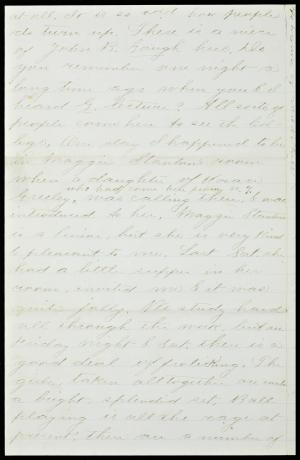 at all. It is so odd how people
do turn up. There is a niece
of John B. Gough here. Do
you remember one night a
long time ago when you & I
heard G. lecture? All sorts of
people come here to see the col-
lege. One day I happened to be
in Maggie Stanton's room
when a daughter of Horace
who had come from N.Y.
Greeley, was calling there, & was
introduced to her. Maggie Stanton
is a Senior, but she is very kind
& pleasant to me. Last Sat. she
had a little supper in her
room, invited me & it was
quite jolly. We study hard
all through the week, but on
Friday night & Sat. there is a
good deal of frolicking. The
girls, taken all together are such
a bright splendid set. Ball
playing is all the rage at
present; there are a number of